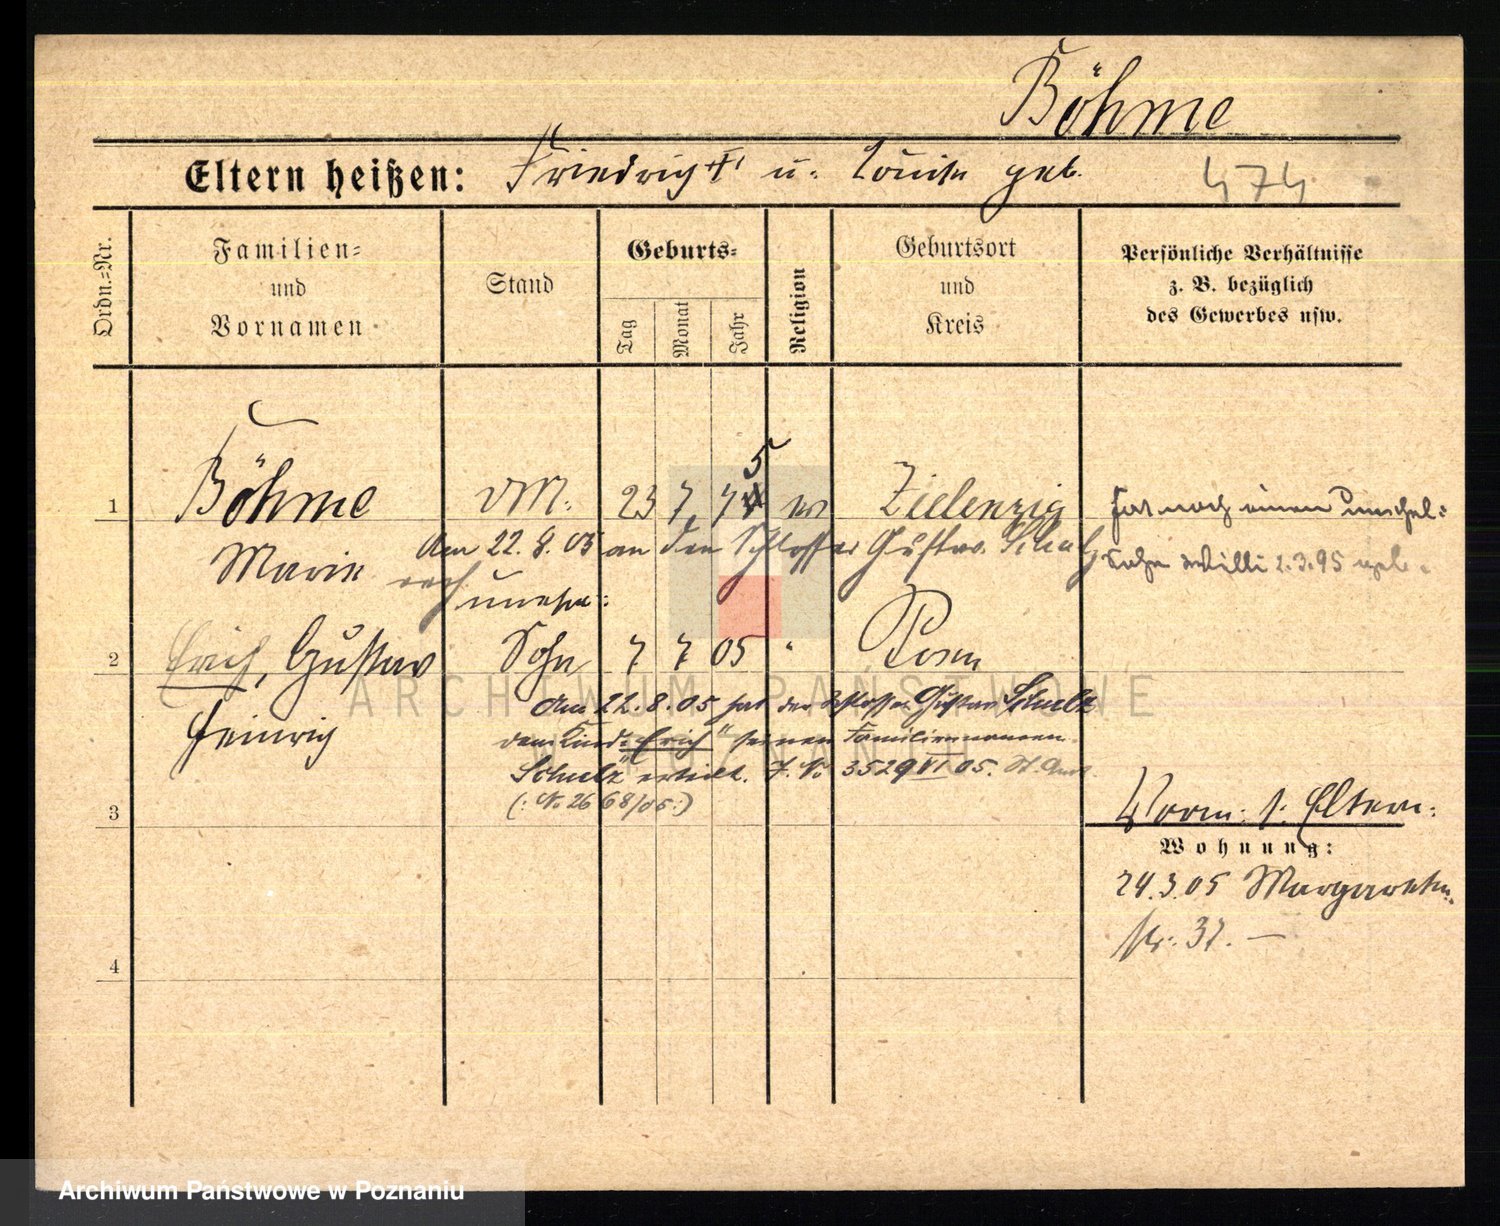 Böhme
Eltern heißen: Friedrich † u. Louise geb.
474
Ordn.=Nr.
Familien=
und
Vornamen
Stand
Geburts=
Tag
Monat
Jahr
Religion
Geburtsort
und
Kreis
Persönliche Verhältnisse
z. B. bezüglich
des Gewerbes usw.
1 Böhme 23 7. 7 5 Zielenzig hat noch einen unehel=
Am 22. 8. 05 an den Schlosser Gustav Schulz
Sohn Willi 2.3.95 geb.
Marie
unehe:
2 Erich, Gustav Sohn 7 7 05 " Posen
Am 22.8.05 hat der Schlosser Gustav Schulz
Heinrich dem Kinde "Erich" seinen Familiennamen
"Schulz" erteilt. J. No 3529 VI 05. St. Amt.
(: No 2668/05 :)
3
Vorm: s. Eltern:
Wohnung:
24.3.05 Margareten
str. 37. —
4
ARCHIWUM PAŃSTWOWE
W POZNANIU
Archiwum Państwowe w Poznaniu